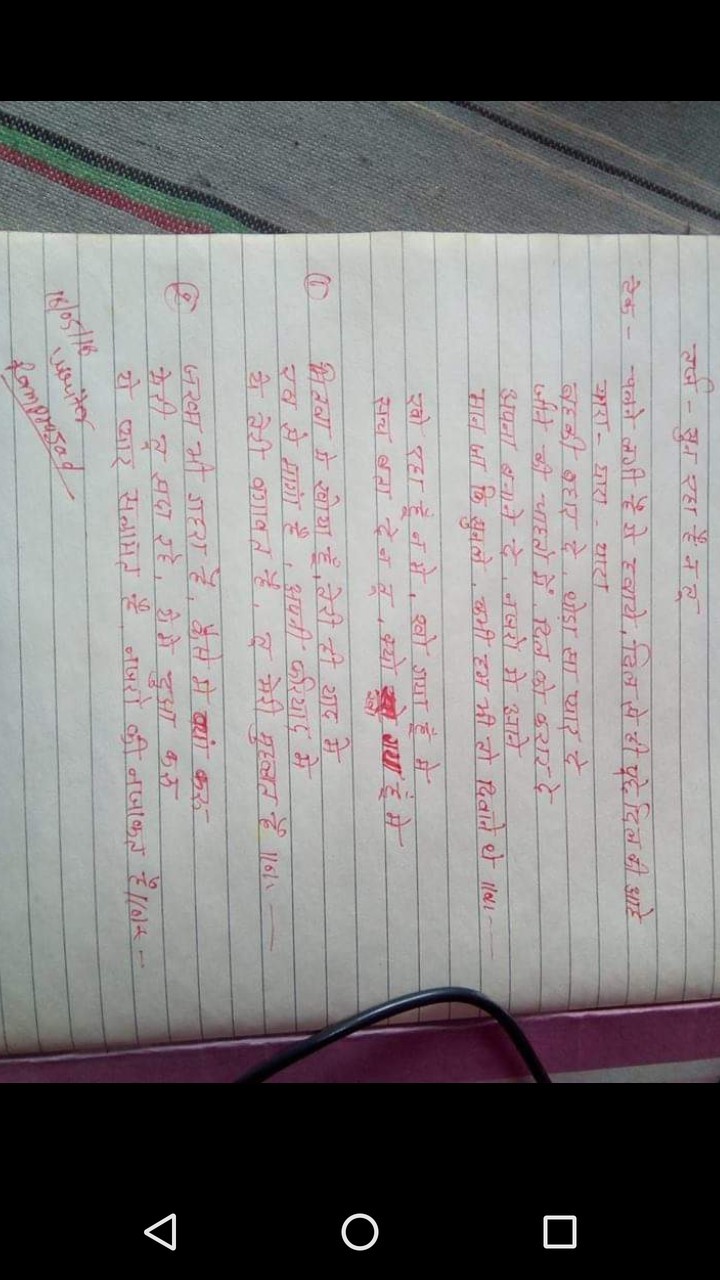 तर्ज - सुन रहा है न तू
टेक - चलने लगी हैं ये हवाये, दिल से ही पूछे दिल की आहे
जरा - जरा - जरा
बहकी बहार है, थोड़ा सा प्यार है
जीने की चाहतो में, दिल को करार है
अपना बनाने दे, नजरो मे आने
मान जा कि सुनले, कभी हम भी तो दिवाने थे ॥
खो रहा हूँ न मै, खो गया हूँ मै
सच बता दे न तू, क्यो खो गया हूँ मै
① खोया हूँ, तेरी ही याद मे
रब से मांगा है, अपनी फरियाद मे
ये तेरी है, तू मेरी मुहब्बत है ॥
② जख्म भी गहरा है, कैसे मै बयां करू
मेरी तू सदा रहे, ऐसे दुआ करू
ये प्यार सलामत है, नजरो की नजाकत है ॥
16/05/18
Writer
Ramprasad